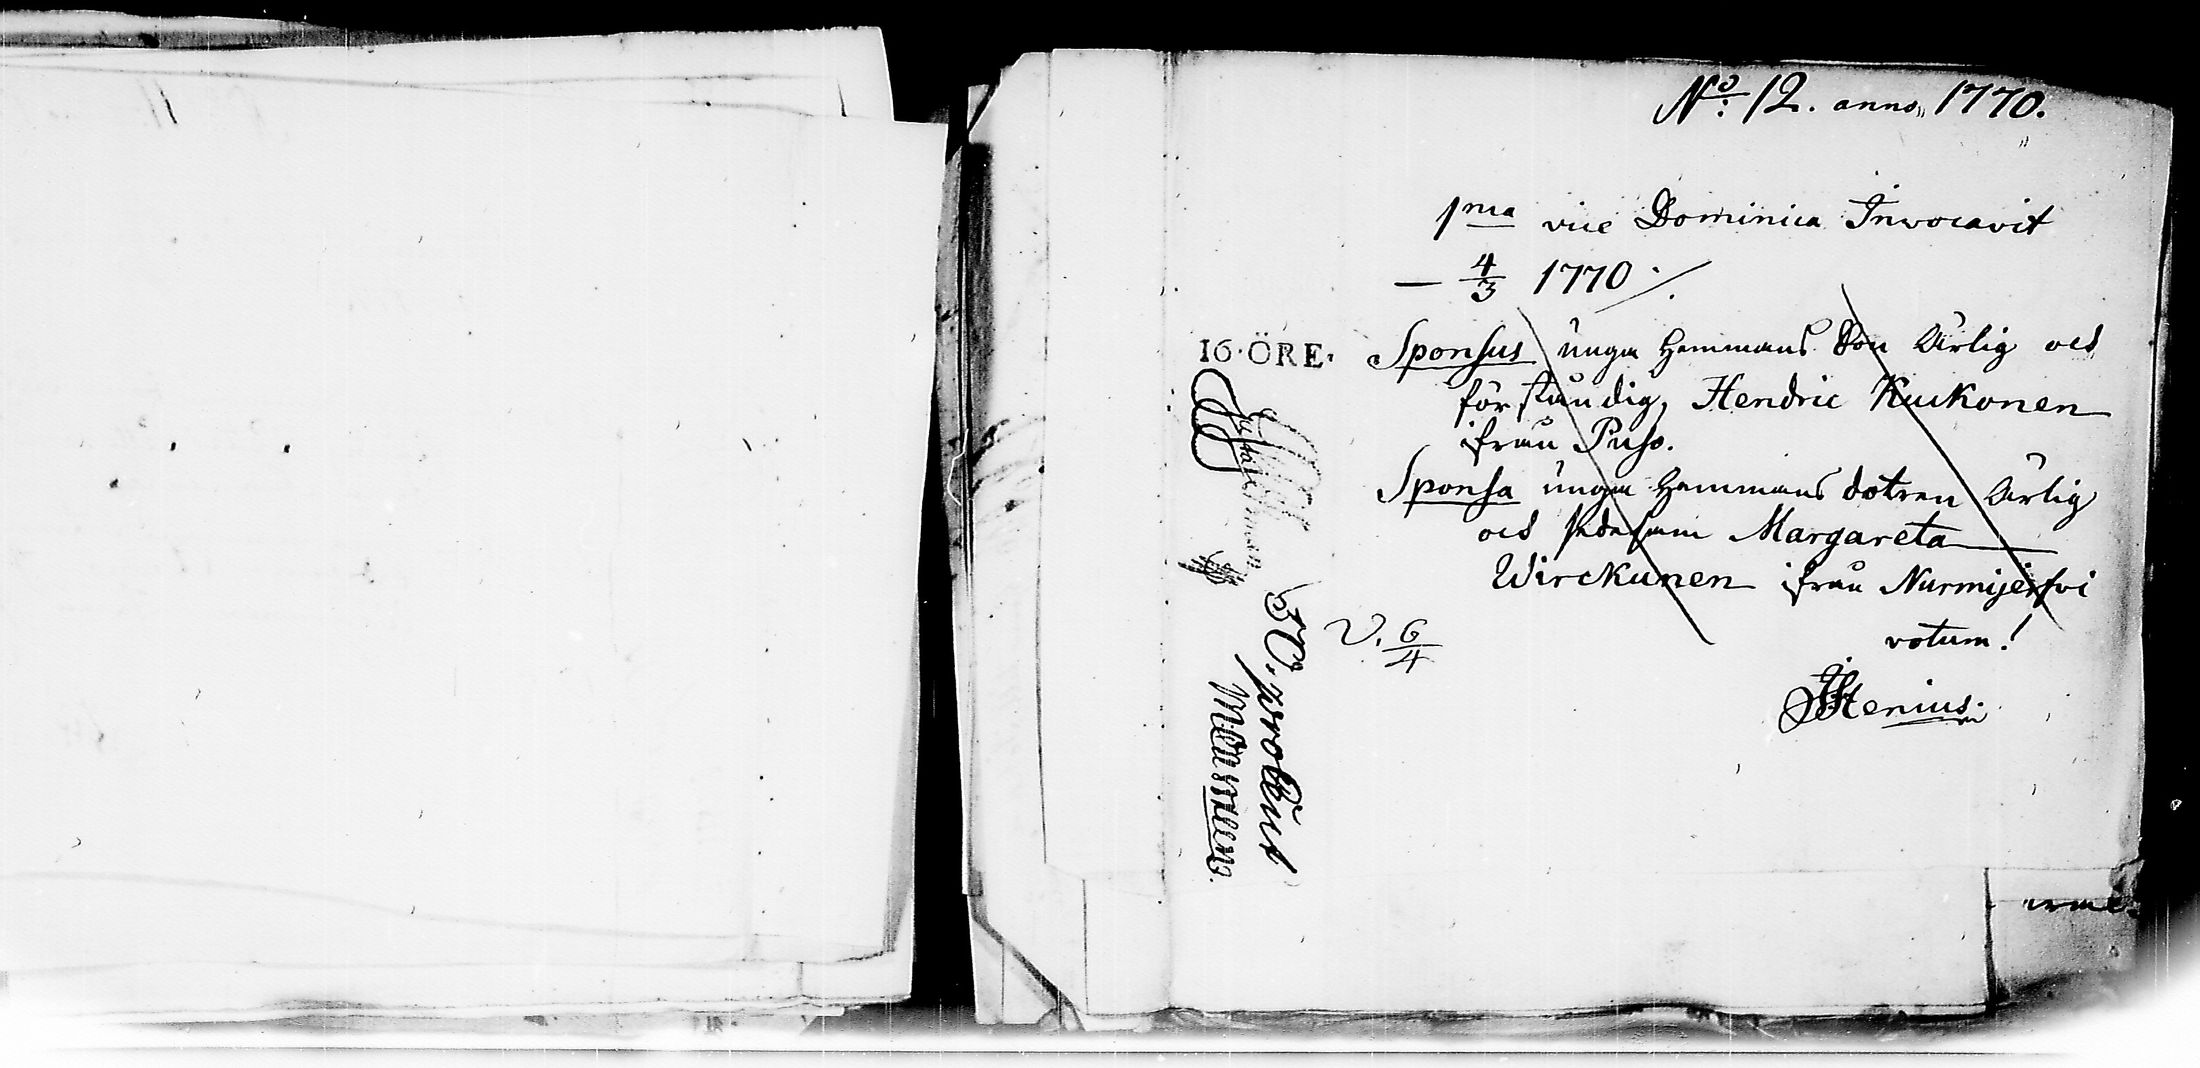 No: 12. anno, 1770.
1ma vice Dominica Invocavit
— 4/3 1770 ·/.
16·ÖRE·
Sponsus unga Hemmans Son Ärlig och
förståndig, Hendric Kukkonen
ifrån Puso.
Sponsa unga Hemmans dotren Ärlig
och sedesam Margareta
Wirckunen ifrån Nurmijerfvi
V. 6/4
votum!
Stenius.